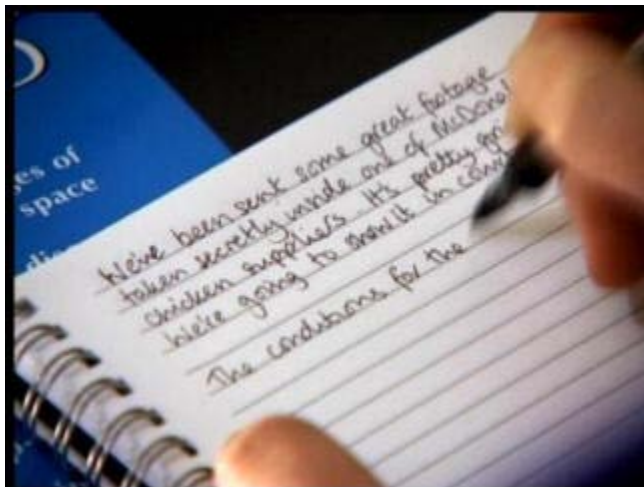 ges of
space
We've been sent some great footage
taken secretly inside one of McDonal
chicken suppliers. It's pretty
We're going to show it in
The conditions for the